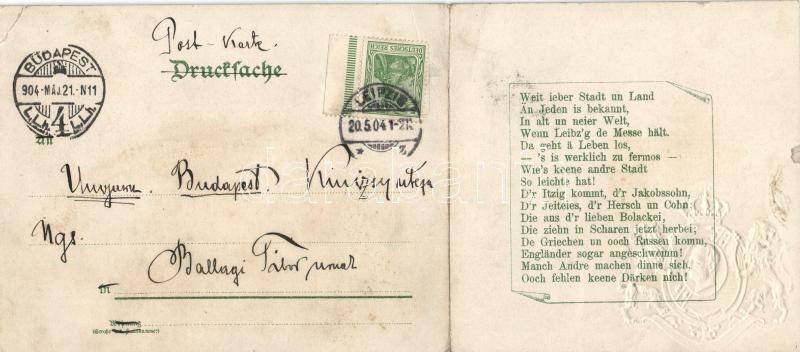 Post-Karte
Drucksache
BUDAPEST
904·MÁJ.21·N11
4
DEUTSCHES REICH
LEIPZIG
20.5.04.1-2N.
an
Budapest.
Ballagi Tibor
in
Wohnung
Weit ieber Stadt un Land
An Jeden is bekannt,
In alt un neier Welt,
Wenn Leibz'g de Messe hält.
Da geht ä Leben los,
— 's is werklich zu fermos —
Wie's keene andre Stadt
So leichte hat!
D'r Itzig kommt, d'r Jakobssohn,
D'r Jeiteles, d'r Hersch un Cohn;
Die aus d'r lieben Bolackei,
Die ziehn in Scharen jetzt herbei;
De Griechen un ooch Russen komm,
Engländer sogar angeschwomm!
Manch Andre machen dinne sich,
Ooch fehlen keene Därken nich!